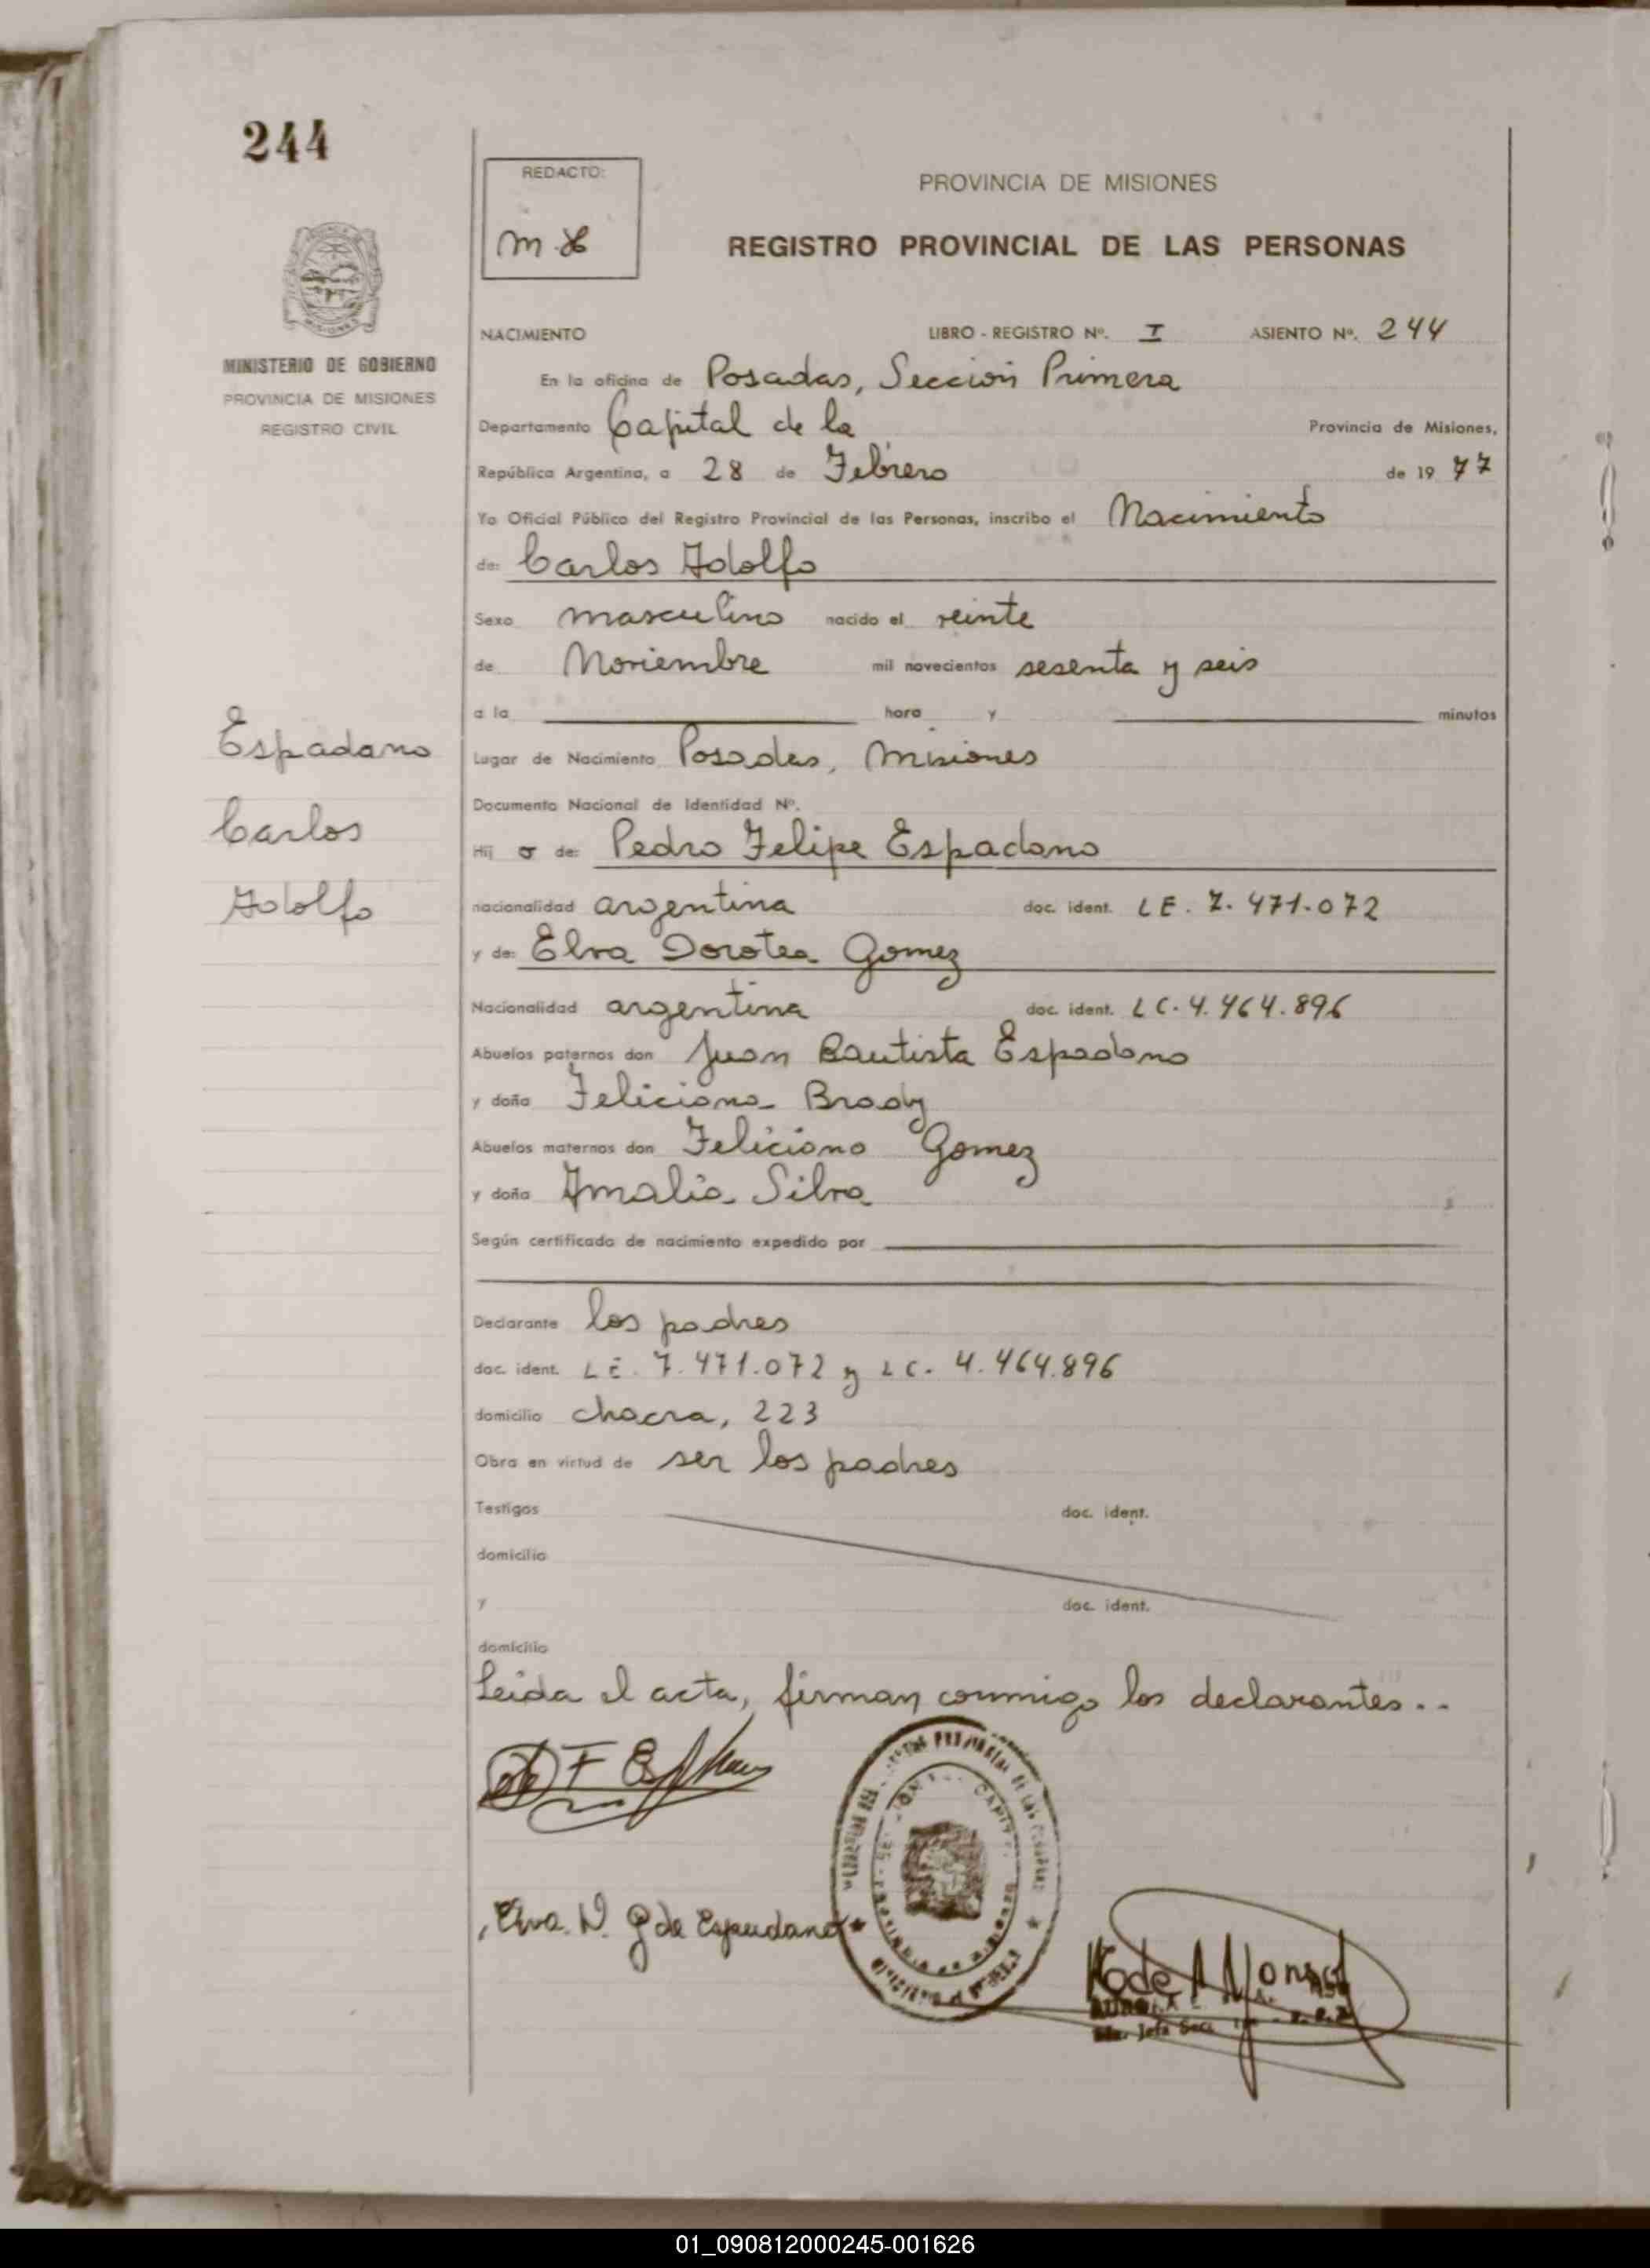 244
REDACTO:
PROVINCIA DE MISIONES
REGISTRO PROVINCIAL DE LAS PERSONAS
MISIONES
MINISTERIO DE GOBIERNO
PROVINCIA DE MISIONES
REGISTRO CIVIL
NACIMIENTO LIBRO - REGISTRO Nº. I ASIENTO Nº. 244
En la oficina de Posadas, Sección Primera
Departamento Capital de la Provincia de Misiones,
República Argentina, a 28 de Febrero de 1977
Yo Oficial Público del Registro Provincial de las Personas, inscribo el Nacimiento
de: Carlos Adolfo
Sexo masculino nacido el veinte
de Noviembre mil novecientos sesenta y seis
a la hora y minutos
Espadano
Carlos
Adolfo
Lugar de Nacimiento Posadas, Misiones
Documento Nacional de Identidad Nº.
Hij o de: Pedro Felipe Espadano
nacionalidad argentina doc. ident. LE. 7.471.072
y de: Elva Dorotea Gomez
Nacionalidad argentina doc. ident. LC. 4.464.896
Abuelos paternos don Juan Bautista Espadano
y doña Feliciana Brady
Abuelos maternos don Feliciano Gomez
y doña Amalia Silva
Según certificado de nacimiento expedido por
Declarante los padres
doc. ident. LE. 7.471.072 y LC. 4.464.896
domicilio chacra, 223
Obra en virtud de ser los padres
Testigos doc. ident.
domicilio
y doc. ident.
domicilio
Leida el acta, firman conmigo los declarantes..
Elva. D. G de Espadano
01_090812000245-001626